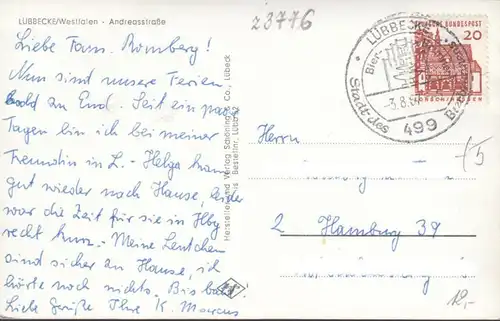 LÜBBECKE/Westfalen - Andreasstraße
23776
Liebe Fam. Romberg!
Nun sind unsere Ferien
bald zu End. Seit ein paar
Tagen bin ich bei meiner
Freundin in L. - Helga kam
gut wieder nach Hause, leider
war die Zeit für sie in Hbg
recht kurz. - Meine Leutchen
sind sicher zu Hause, ich
hörte noch nichts. Bis bald
Liebe Grüße Ihre K. Marcus
Hersteller und Verlag Schöning & Co., Lübeck
Bestellnr. Lübb
LÜBBECKE
Bier
Stadt des
499
-3.8.
BUNDESPOST
20
Herrn
2 Hamburg 39